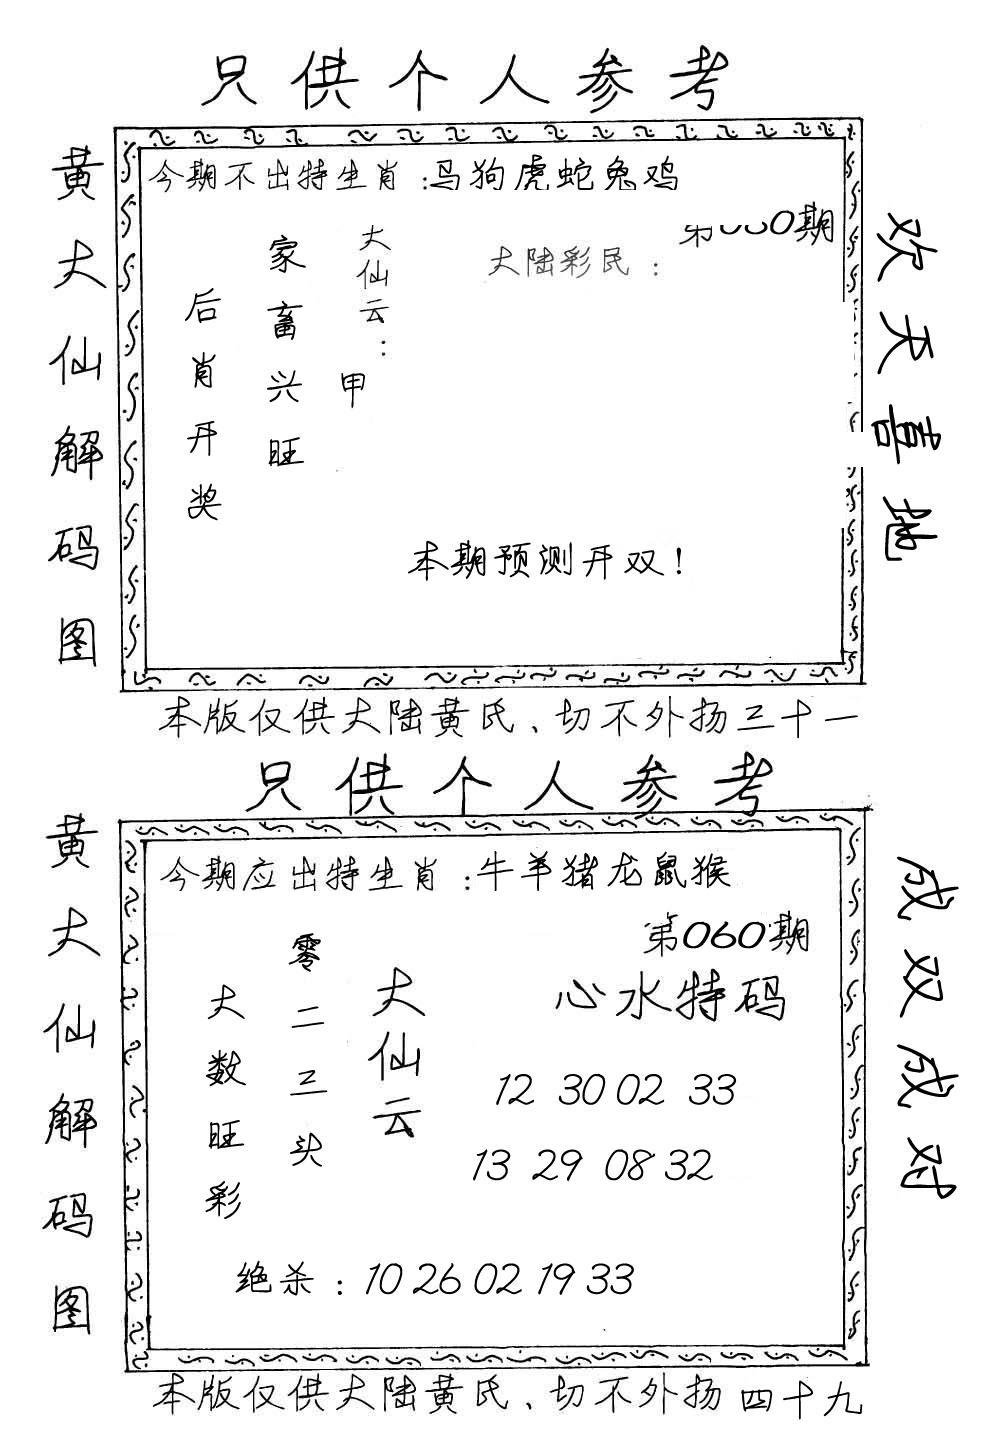 只供个人参考
黄大仙解码图
今期不出特生肖：马狗虎蛇兔鸡
期
大陆彩民：
大仙云：
甲
家畜兴旺
后肖开奖
本期预测开双！
欢天喜地
本版仅供大陆黄氏、切不外扬三十一
只供个人参考
黄大仙解码图
今期应出特生肖：牛羊猪龙鼠猴
第060期
心水特码
大仙云
零二三头
大数旺彩
12 30 02 33
13 29 08 32
绝杀：10 26 02 19 33
成双成对
本版仅供大陆黄氏、切不外扬四十九